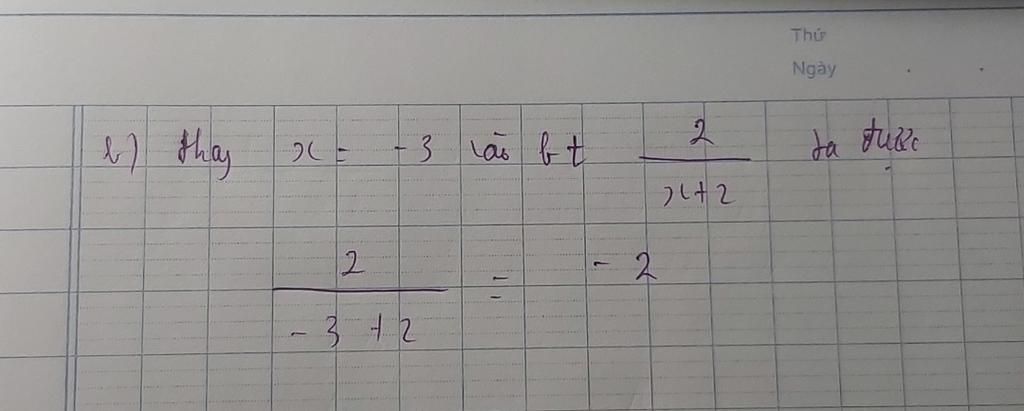 Thứ
Ngày
b) thay x = -3 vào bt 2/(x+2) ta được
2/(-3+2) = -2